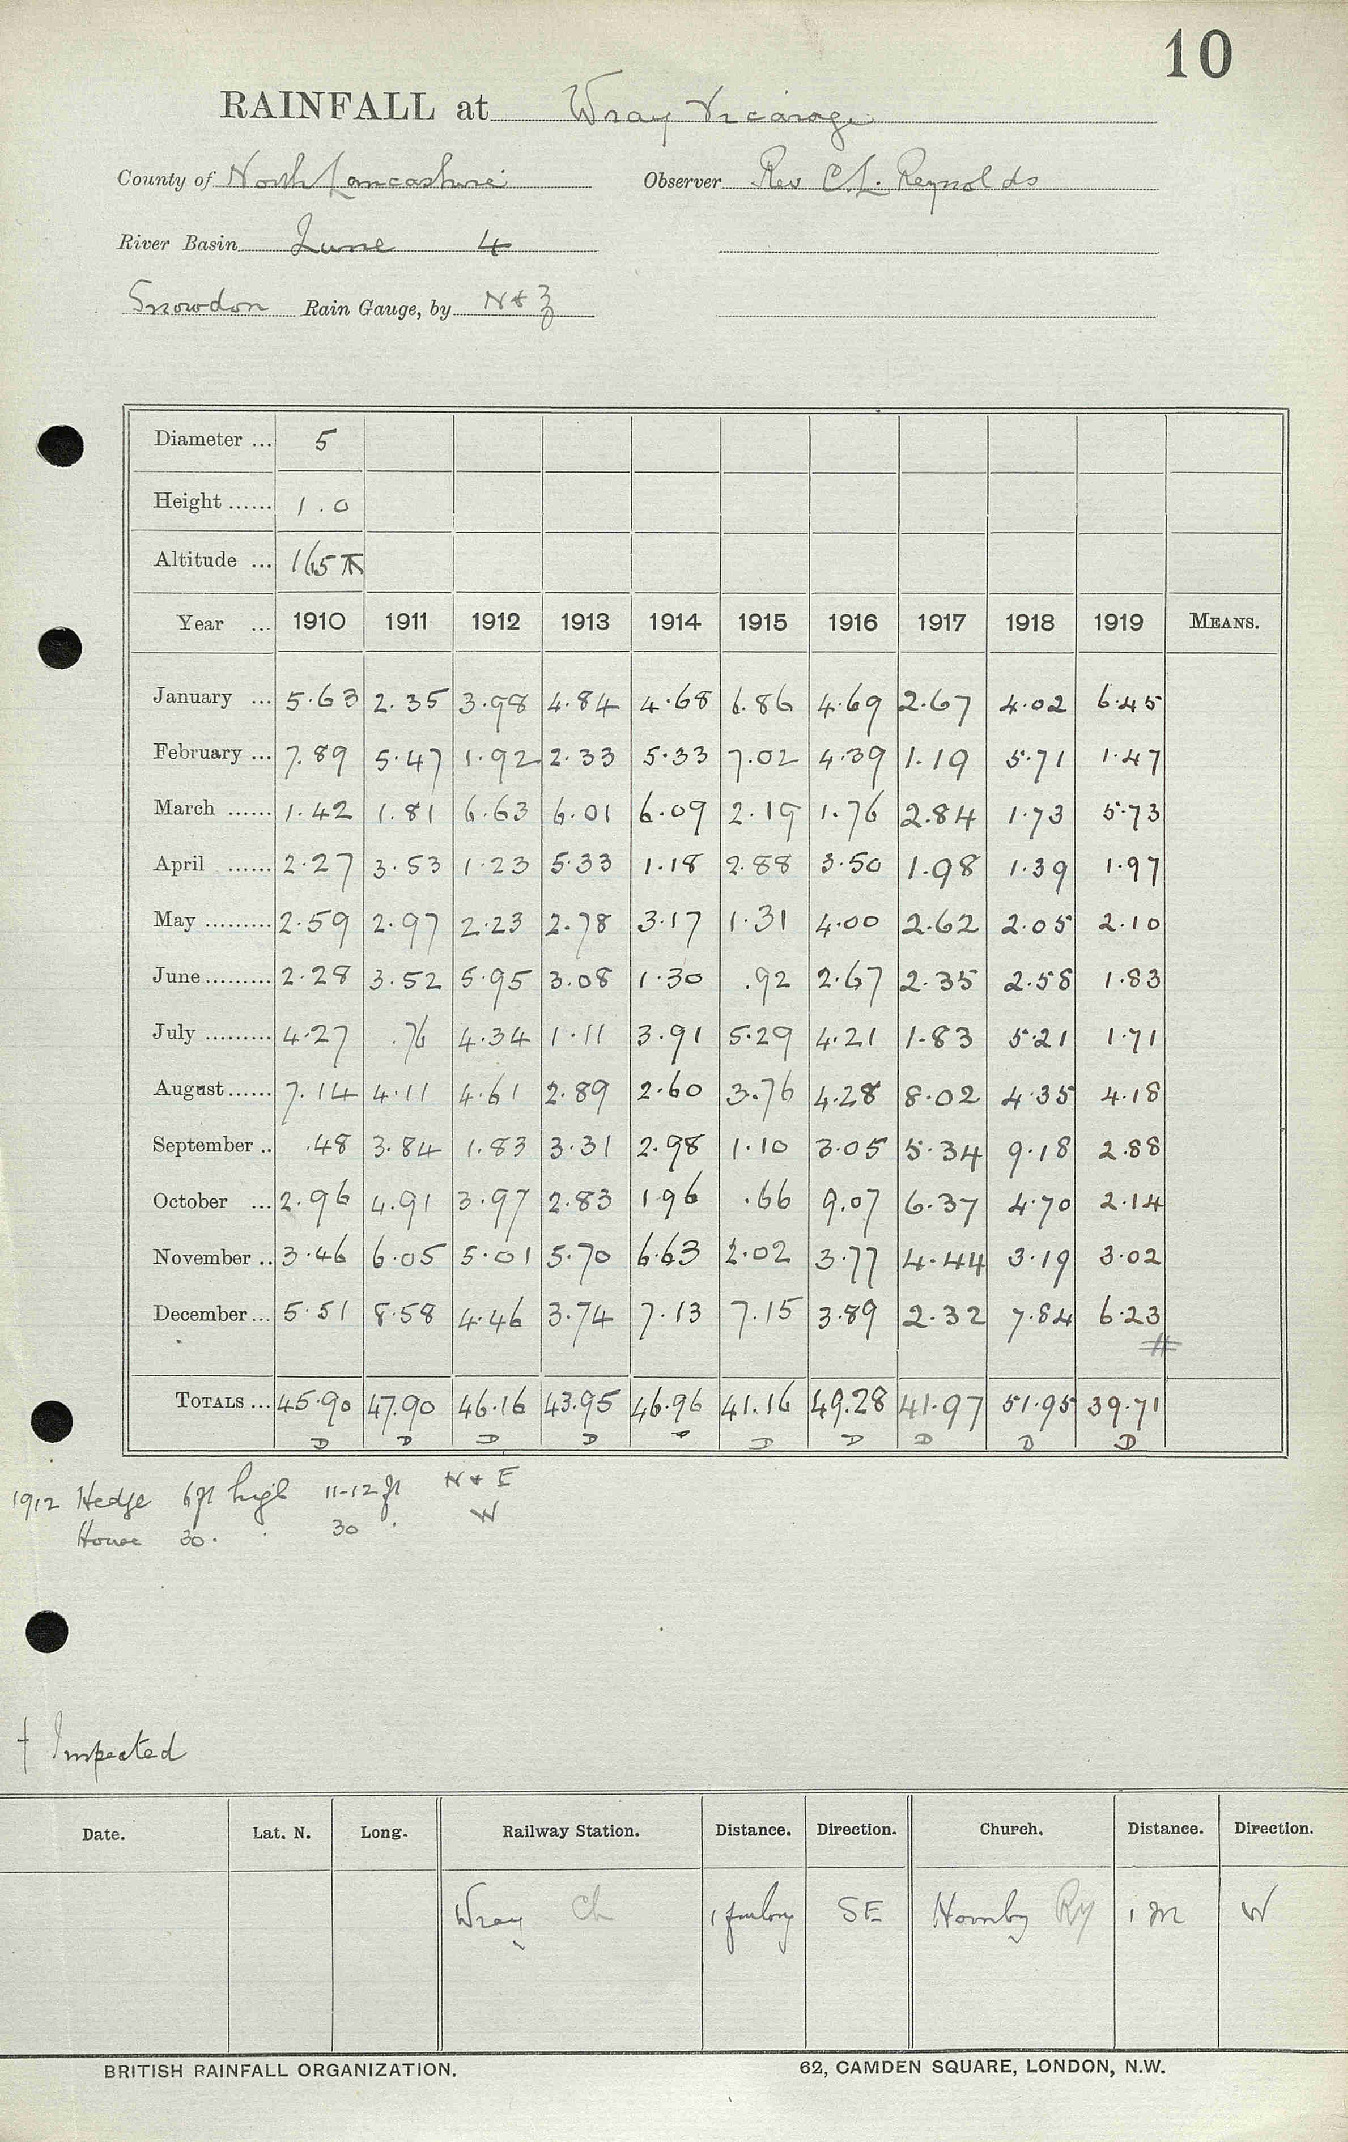 10
RAINFALL at Wray Vicarage
County of North Lancashire Observer Rev C.L. Reynolds
River Basin Lune 4
Snowdon Rain Gauge, by N & Z
Diameter ... 5
Height ...... 1.0
Altitude ... 165
Year ... 1910 1911 1912 1913 1914 1915 1916 1917 1918 1919 MEANS.
January ... 5.63 2.35 3.98 4.84 4.68 6.86 4.69 2.67 4.02 6.45
February ... 7.89 5.47 1.92 2.33 5.33 7.02 4.39 1.19 5.71 1.47
March ...... 1.42 1.81 6.63 6.01 6.09 2.19 1.76 2.84 1.73 5.73
April ...... 2.27 3.53 1.23 5.33 1.18 2.88 3.50 1.98 1.39 1.97
May ......... 2.59 2.97 2.23 2.78 3.17 1.31 4.00 2.62 2.05 2.10
June ......... 2.28 3.52 5.95 3.08 1.30 .92 2.67 2.35 2.58 1.83
July ......... 4.27 .76 4.34 1.11 3.91 5.29 4.21 1.83 5.21 1.71
August ...... 7.14 4.11 4.61 2.89 2.60 3.76 4.28 8.02 4.35 4.18
September .. .48 3.84 1.83 3.31 2.98 1.10 3.05 5.34 9.18 2.88
October ... 2.96 4.91 3.97 2.83 1.96 .66 9.07 6.37 4.70 2.14
November .. 3.46 6.05 5.01 5.70 6.63 2.02 3.77 4.44 3.19 3.02
December ... 5.51 8.58 4.46 3.74 7.13 7.15 3.89 2.32 7.84 6.23
#
TOTALS ... 45.90 47.90 46.16 43.95 46.96 41.16 49.28 41.97 51.95 39.71
D D D D D D D D D
1912 Hedge 6ft high 11-12ft N & E
House 30 . . 30 . W
† Inspected
Date. Lat. N. Long. Railway Station. Distance. Direction. Church. Distance. Direction.
Wray Ch 1 furlong SE Hornby Ry 1 m W
BRITISH RAINFALL ORGANIZATION. 62, CAMDEN SQUARE, LONDON, N.W.